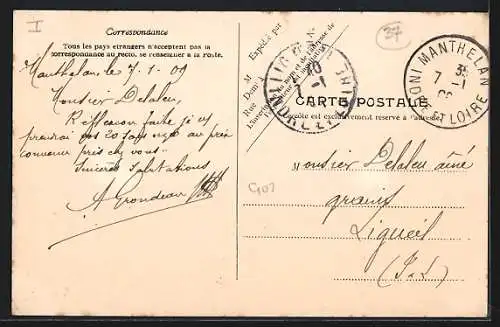 I
37
Correspondance
Tous les pays étrangers n'acceptent pas la
correspondance au recto, se renseigner à la Poste.
Manthelan, le 7-1-09
Monsieur Delaleu,
Réflexion faite je
prendrai les 20 au prix
convenu près de vous
Sincères Salutations
A Grondeau
M
Expédié par
M
Dem
Rue
CARTE POSTALE
Ce côté est exclusivement réservé à l'adresse
MANTHELAN
7 -1
ET LOIRE
10
-1
Monsieur Delaleu aîné
grains
Ligueil
(I-L)